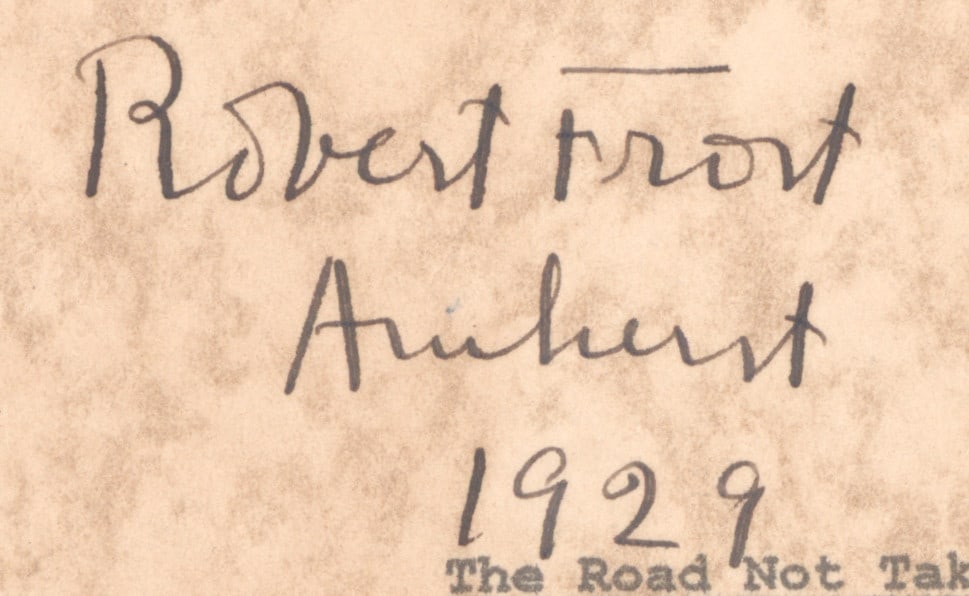 Robert Frost
Amherst
1929
The Road Not Tak